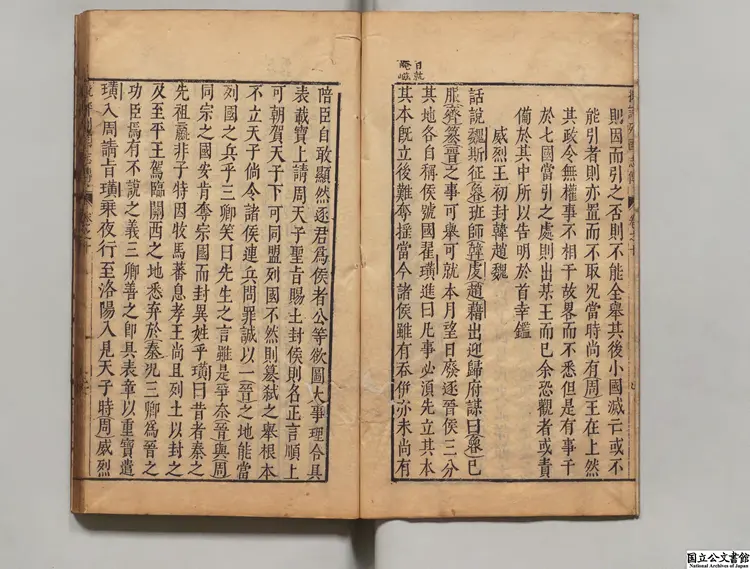 日就
則因而引之否則不能全舉其後小國滅亡或不
能引者則亦置而不取况當時尚有周王在上然
其政令無權事不相干故畧而不悉但是有事干
於七國當引之處則出某王而已余恐觀者或責
備於其中所以告明於首幸鑑
威烈王初封韓趙魏
話說魏斯征秦班師韓虔趙藉出迎歸府謀曰魯已
服齊簒晉之事可舉可就本月望日廢逐晉侯三分
其地各自稱侯號國翟璜進曰凡事必湏先立其本
其本既立後難奪揺當今諸侯雖有吞併亦未尚有
陪臣自敢顯然逐君爲侯者公等欲圖大事理合具
表載寶上請周天子聖旨賜土封侯則名正言順上
可朝賀天子下可同盟列國不然則簒弑之舉根本
不立天子倘令諸侯連兵問罪誠以一晉之地能當
列國之兵乎三卿笑曰先生之言雖是爭奈晉與周
同宗之國安肯奪宗國而封異姓乎璜曰昔者秦之
先祖嬴非子特因牧馬蕃息孝王尚且列土以封之
及至平王駕臨關西之地悉弃於秦况三卿爲晉之
功臣焉有不說之義三卿善之卽具表章以重寶遣
璜入周請旨璜乘夜行至洛陽入見天子時周威烈
国立公文書館
National Archives of Japan